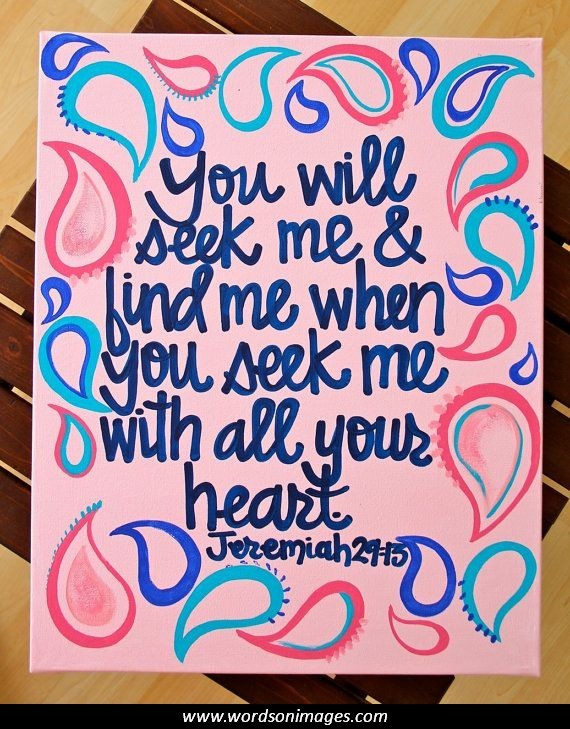 You will
seek me &
find me when
you seek me
with all your
heart.
Jeremiah 29:13
www.wordsonimages.com